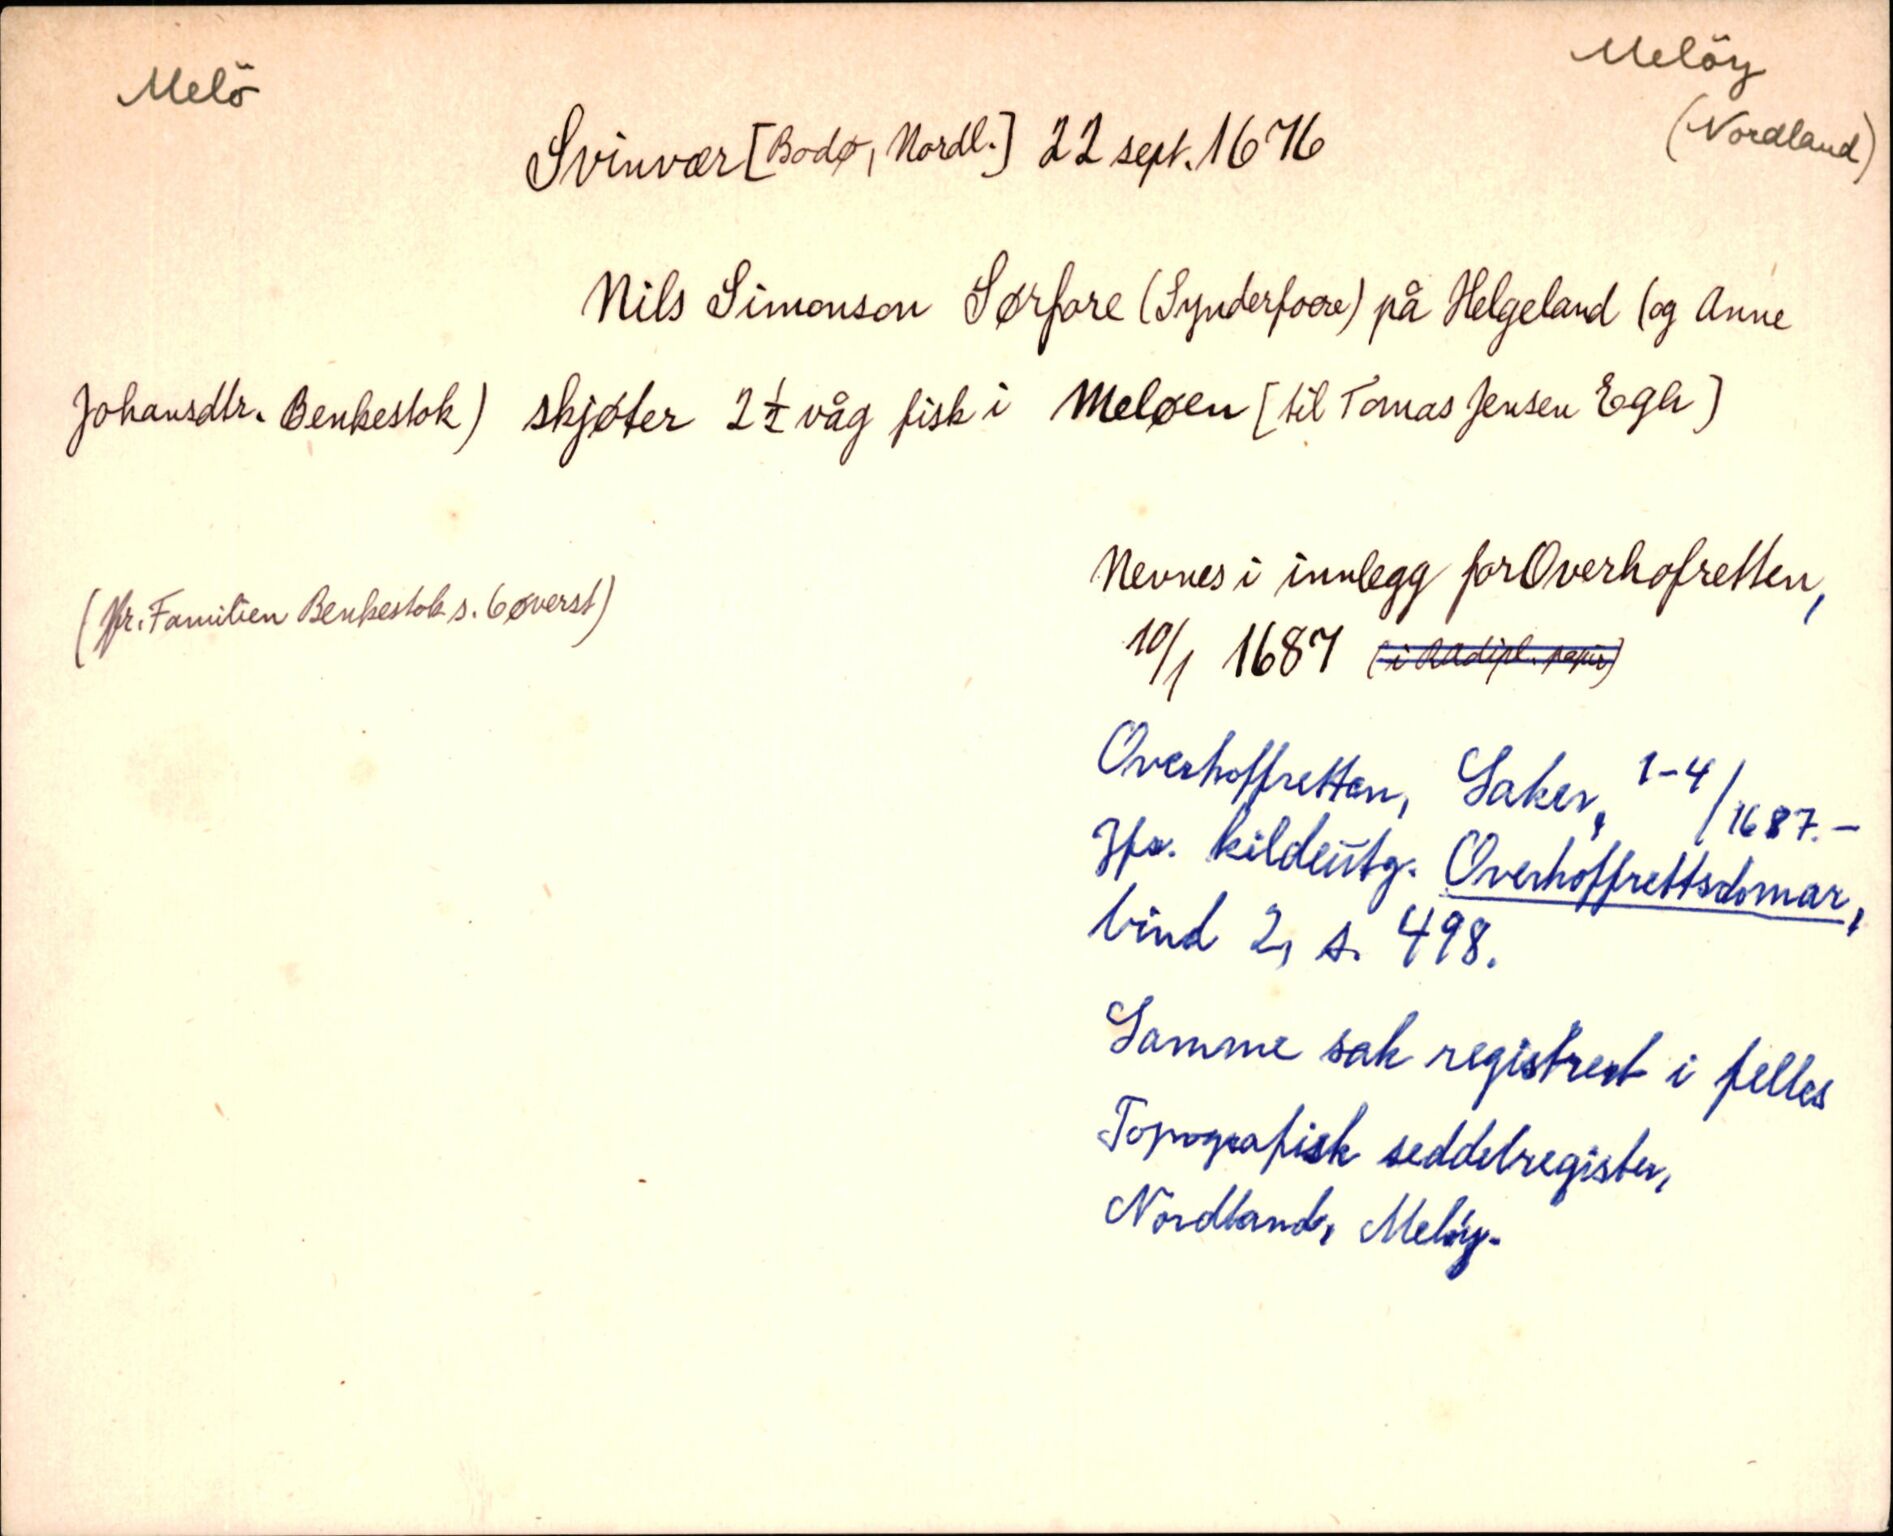 Melö
Melöy
(Nordland)
Svinvær [Bodø, Nordl.] 22 sept. 1676
Nils Simonson Sørfore (Synderfoere) på Helgeland (og Anne
Johansdtr. Benkestok) skjøter 2 1/2 våg fisk i Meløen [til Tomas Jensen Egh]
(Jfr. Familien Benkestok s. 6 øverst)
Nevnes i innlegg for Overhofretten,
10/1 1687 (i RA dipl. papir)
Overhoffretten, Saker, 1-4/1687.-
Jfr. kildeutg. Overhoffrettsdomar,
bind 2, s. 498.
Samme sak registrert i felles
Topografisk seddelregister,
Nordland, Meløy.